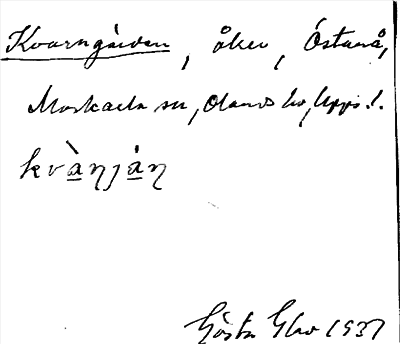 Kvarngärden, åker, Östanå,
Morkarla sn, Olands hd, Uppl.
kvànján
Gösta Ekw 1937